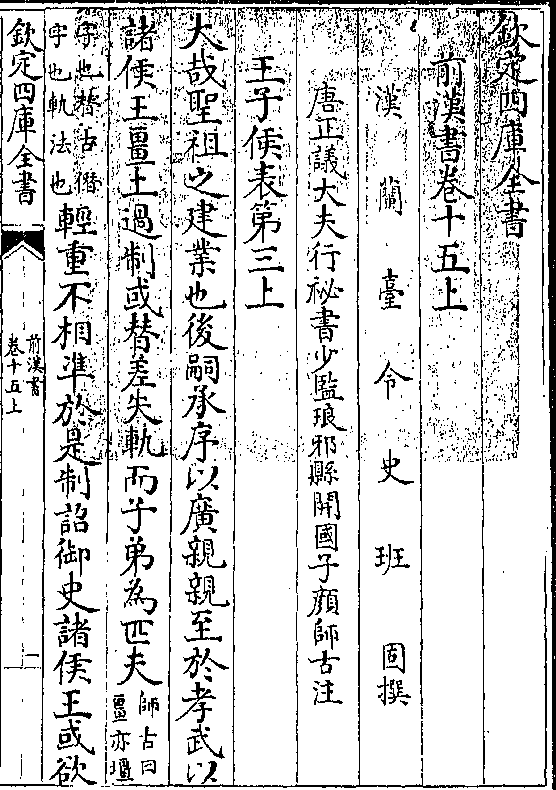 欽定四庫全書
前漢書卷十五上
漢蘭臺令史班固撰
唐正議大夫行祕書少監琅邪縣開國子顔師古注
王子侯表第三上
大哉聖祖之建業也後嗣承序以廣親親至於孝武以
諸侯王畺土過制或替差失軌而子弟為匹夫
師古曰
畺亦壃
字也替古僭
字也軌法也
輕重不相準於是制詔御史諸侯王或欲
欽定四庫全書
前漢書
卷十五上
一